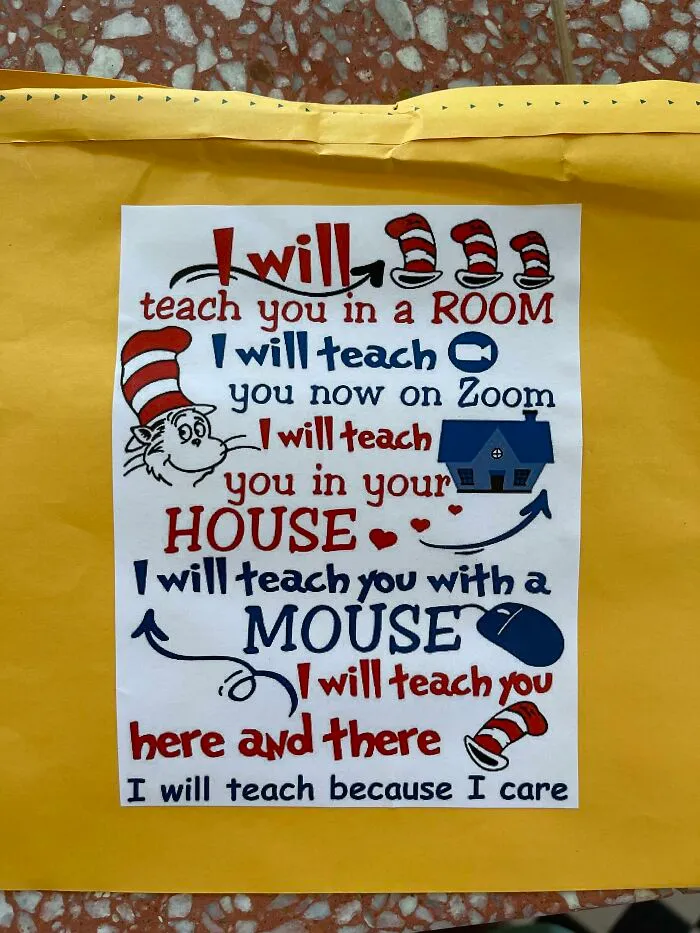 I will
teach you in a ROOM
I will teach
you now on Zoom
I will teach
you in your
HOUSE
I will teach you with a
MOUSE
I will teach you
here and there
I will teach because I care